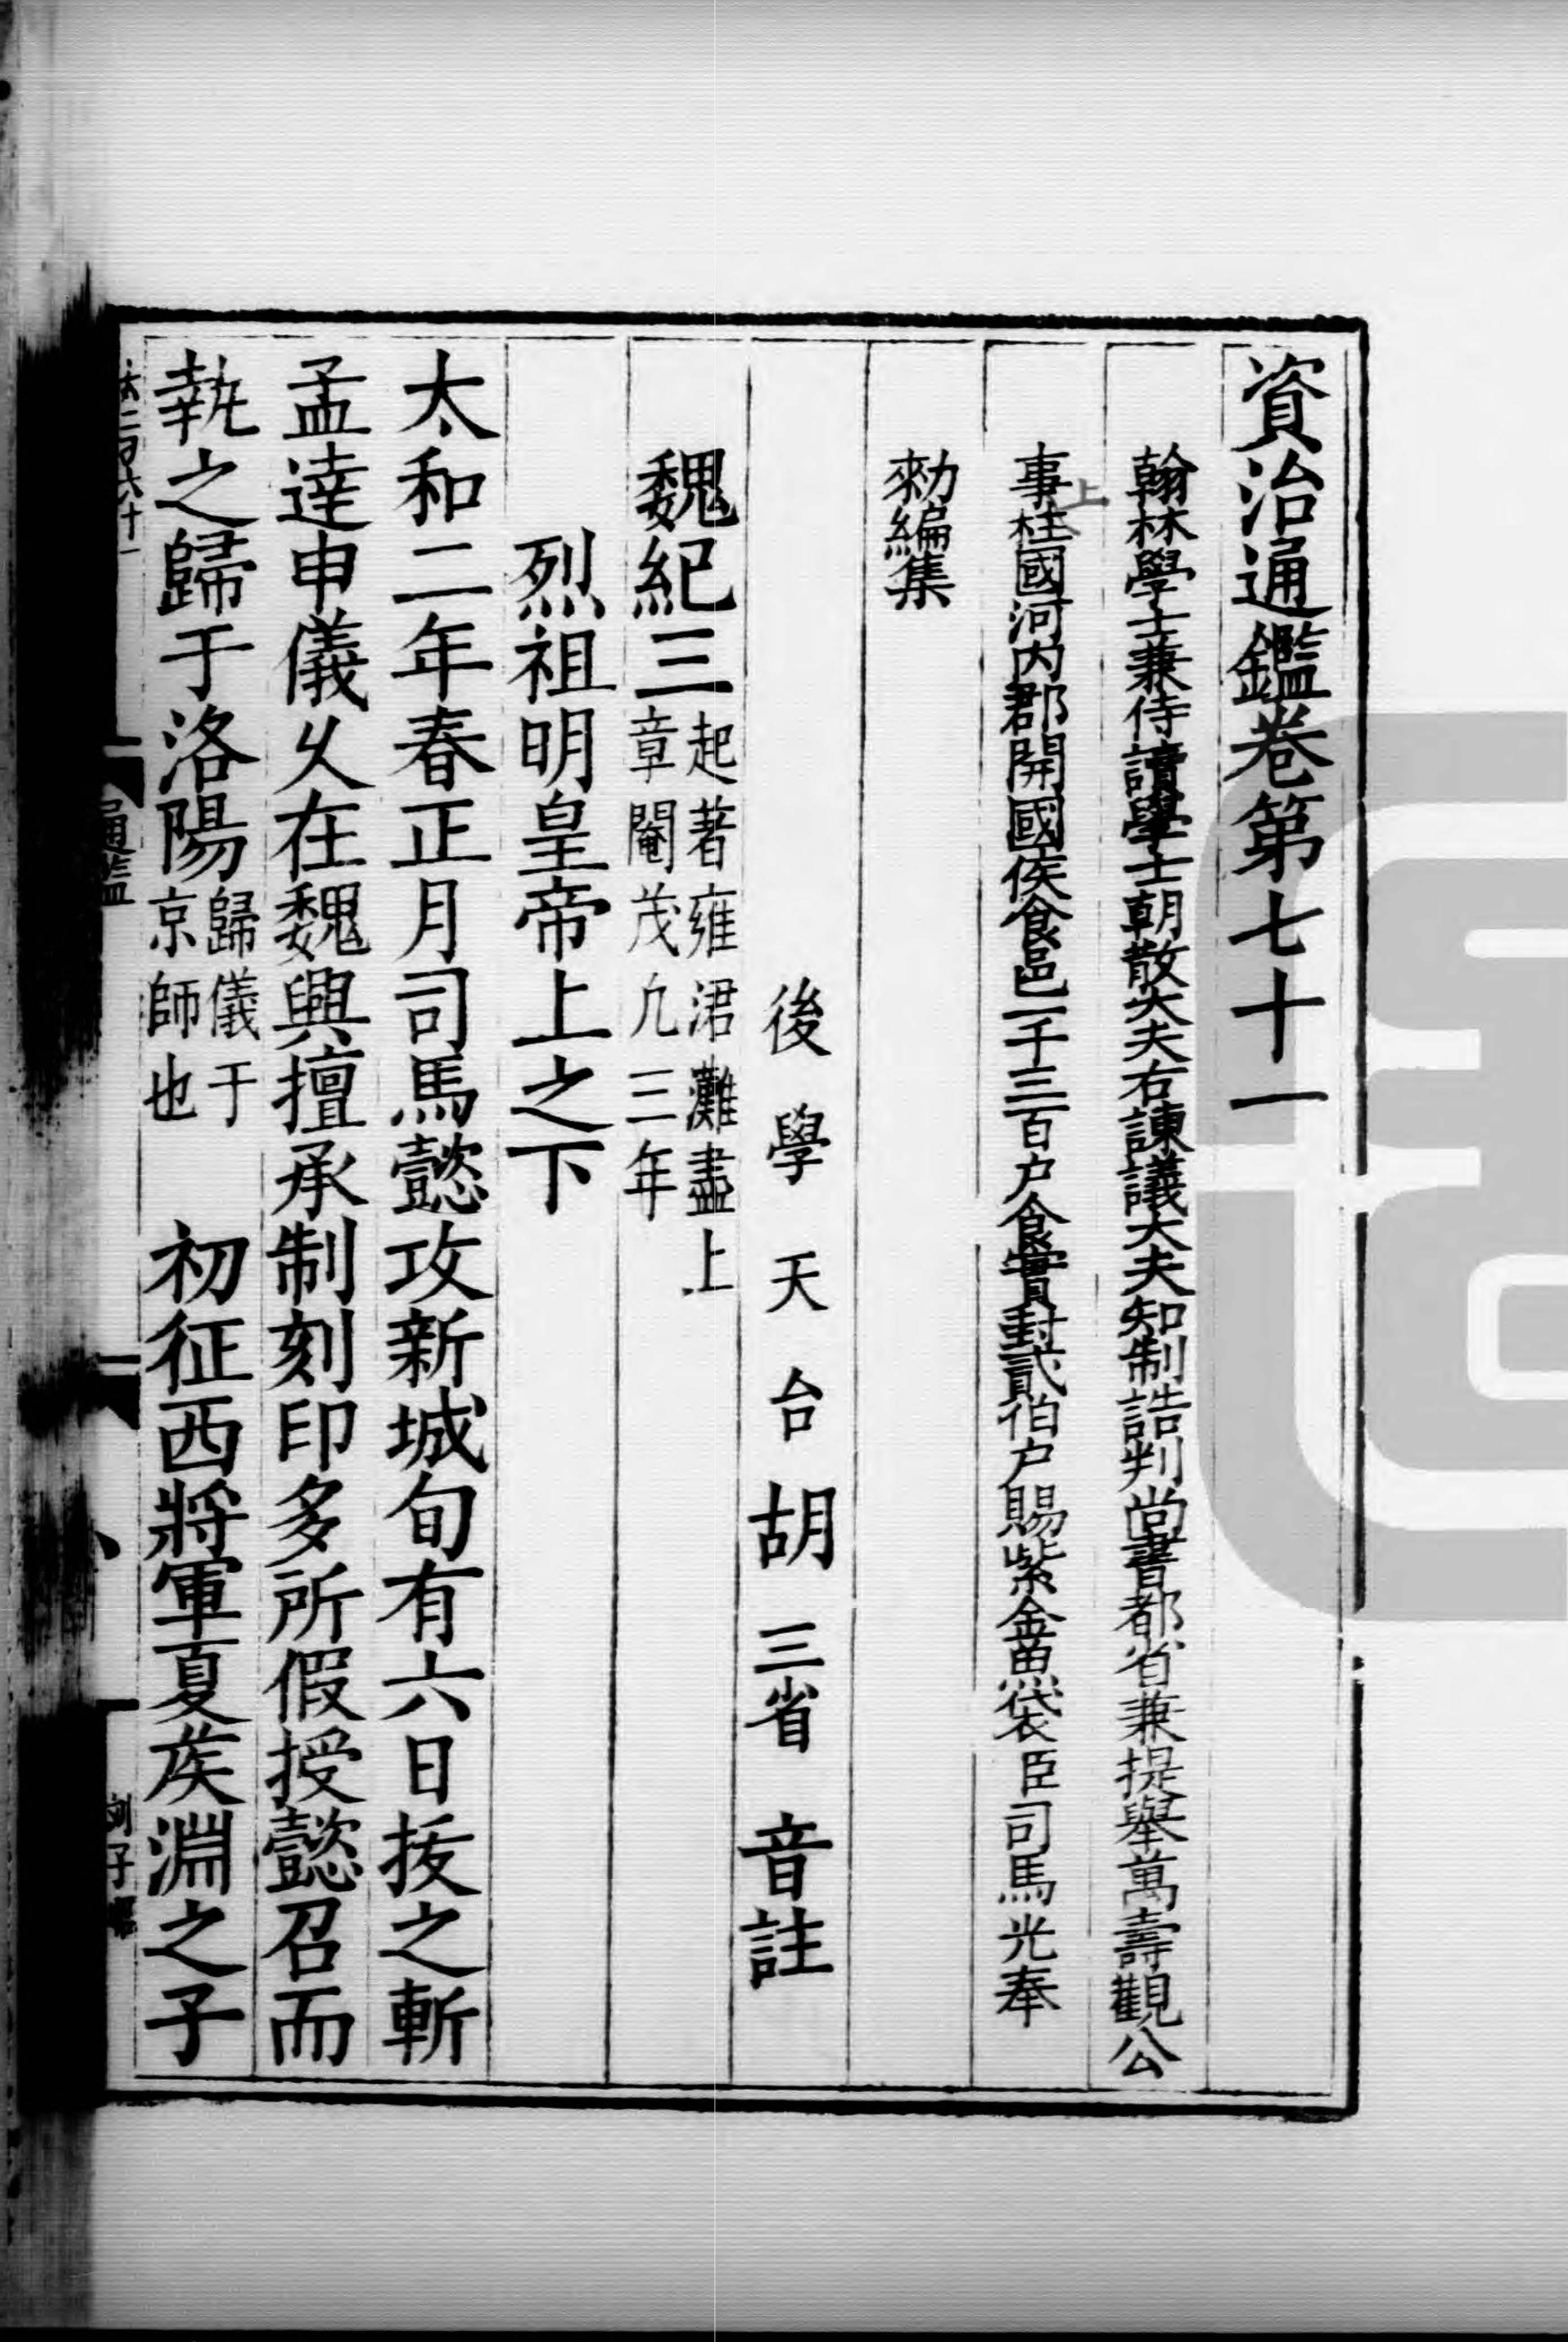 資治通鑑卷第七十一
翰林學士兼侍讀學士朝散大夫右諫議大夫知制誥判尚書都省兼提舉萬壽觀公
事上柱國河内郡開國侯食邑一千三百户食實封貳伯户賜紫金魚袋臣司馬光奉
勑編集
後學天台胡三省音註
魏紀三起著雍涒灘盡上章閹茂凢三年
烈祖明皇帝上之下
太和二年春正月司馬懿攻新城旬有六日拔之斬
孟達申儀乆在魏興擅承制刻印多所假授懿召而
執之歸于洛陽歸儀于京師也 初征西將軍夏矦淵之子
通鑑